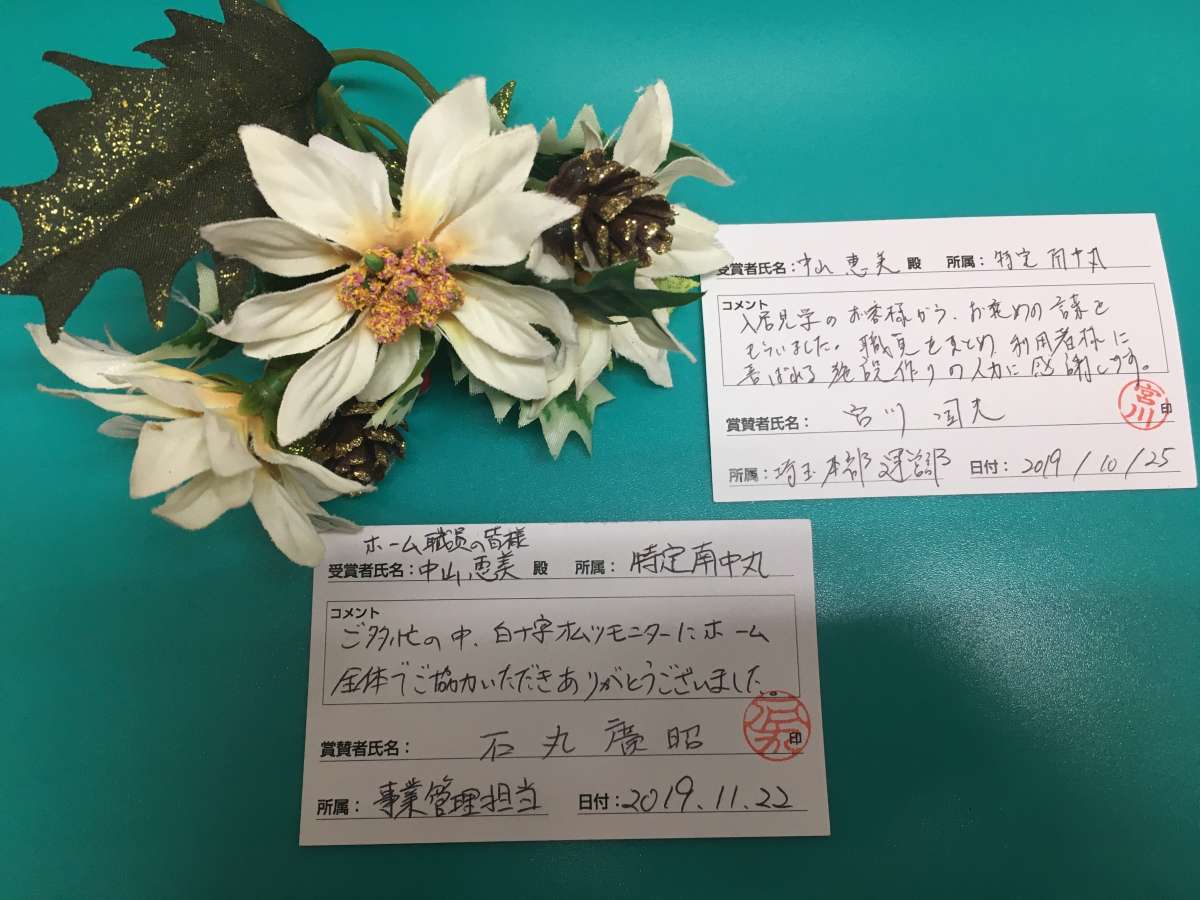 受賞者氏名：中山 恵美 殿 所属：特定 南中丸
コメント
入居見学のお客様から、お褒めの言葉を
もらいました。職員をまとめ、利用者様に
喜ばれる施設作りの入力に感謝します。
賞賛者氏名： 宮川
宮川 印
所属：埼玉本部 運営部 日付：2019/10/25
ホーム職員の皆様
受賞者氏名：中山 恵美 殿 所属：特定南中丸
コメント
ご多忙の中、白十字オムツモニターにホーム
全体でご協力いただきありがとうございました。
賞賛者氏名： 石丸 廣昭
印
所属：事業管理担当 日付：2019.11.22